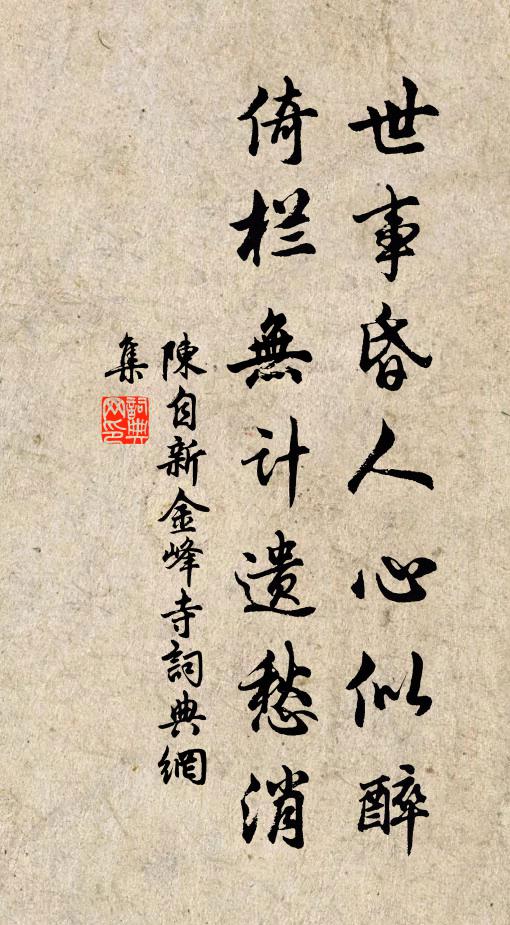 世事昏人心似醉
倚栏無計遺愁消
陳自新金峰寺詞典網
集
詞典
网印